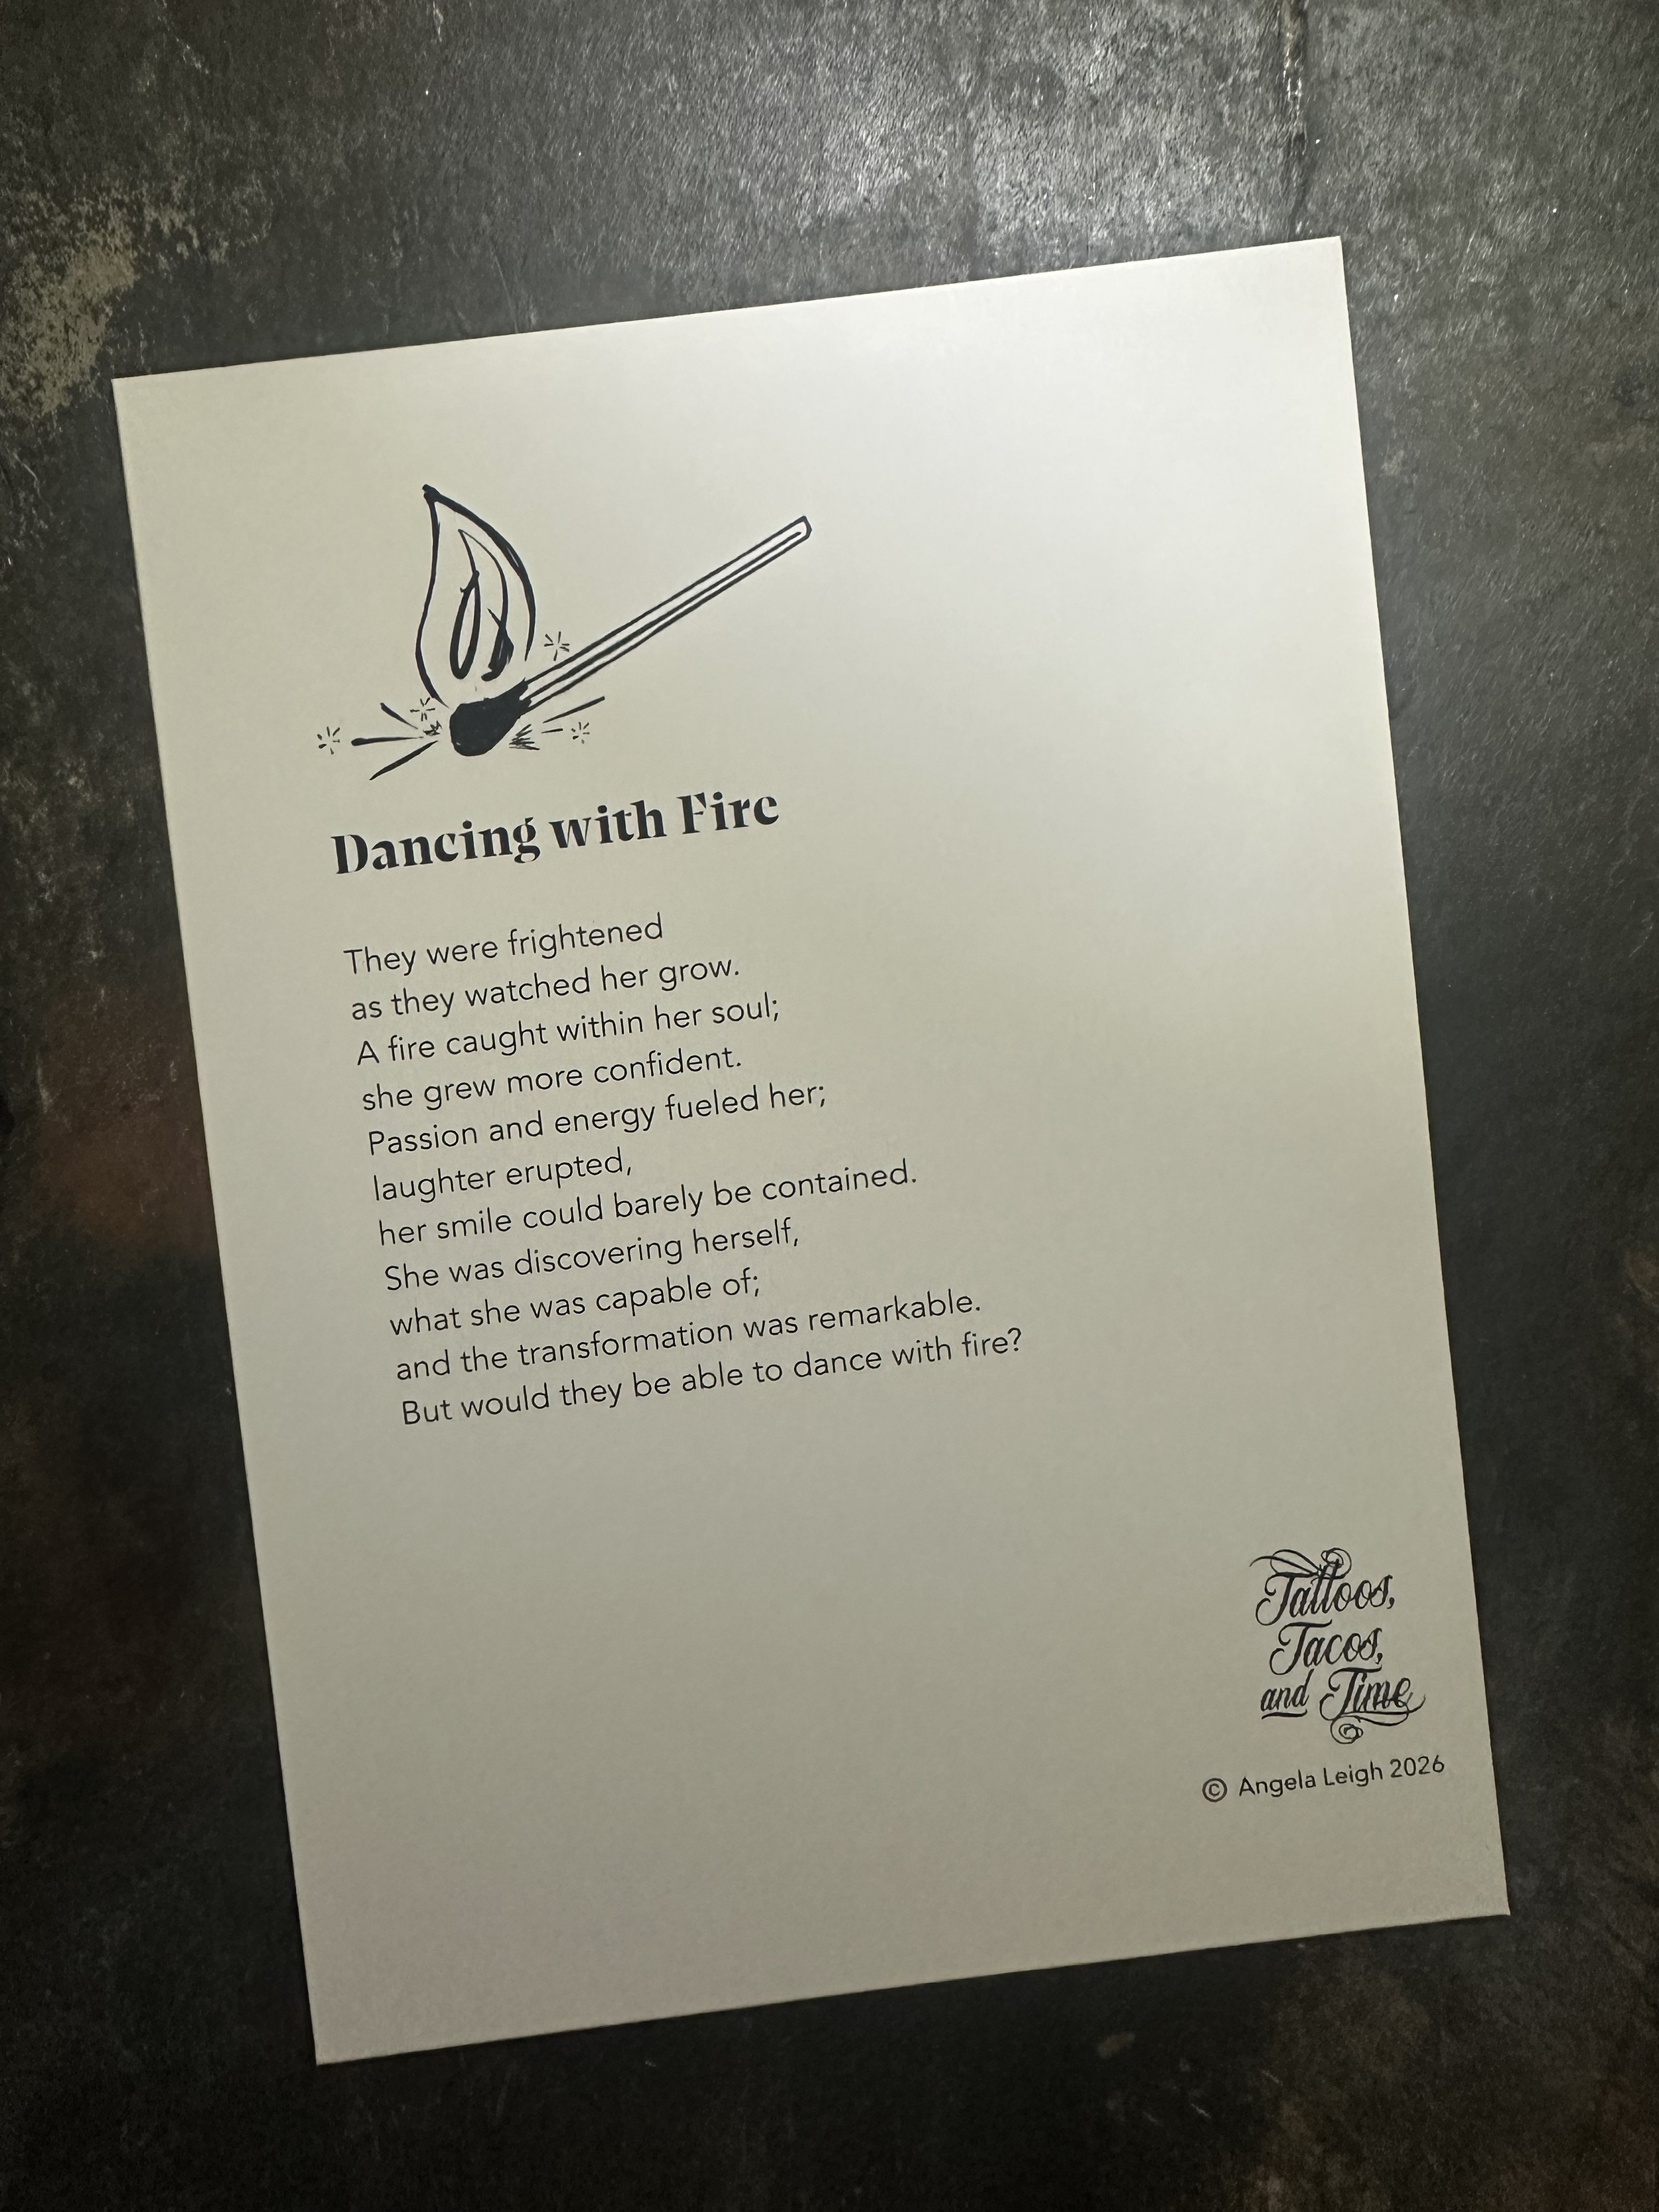 Dancing with Fire
They were frightened
as they watched her grow.
A fire caught within her soul;
she grew more confident.
Passion and energy fueled her;
laughter erupted,
her smile could barely be contained.
She was discovering herself,
what she was capable of;
and the transformation was remarkable.
But would they be able to dance with fire?
Tattoos,
Tacos,
and Time
© Angela Leigh 2026